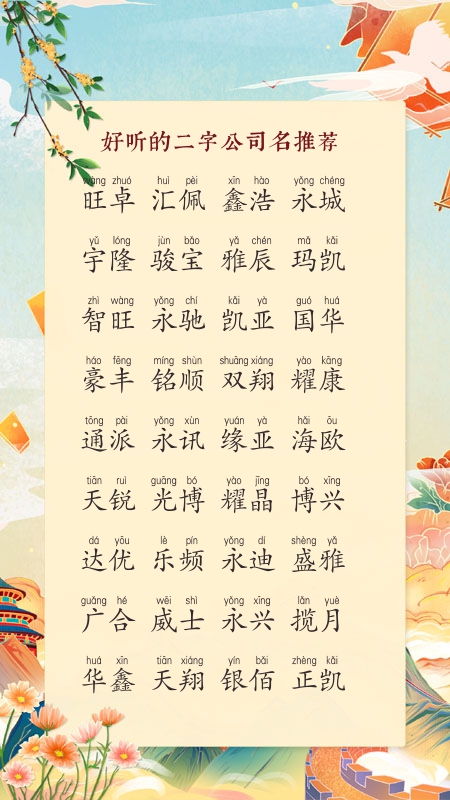 好听的二字公司名推荐
wàng zhuó huì pèi xīn hào yǒng chéng
旺卓 汇佩 鑫浩 永城
yǔ lóng jùn bǎo yǎ chén mǎ kǎi
宇隆 骏宝 雅辰 玛凯
zhì wàng yǒng chí kǎi yà guó huá
智旺 永驰 凯亚 国华
háo fēng míng shùn shuāng xiáng yào kāng
豪丰 铭顺 双翔 耀康
tōng pài yǒng xùn yuán yà hǎi ōu
通派 永讯 缘亚 海欧
tiān ruì guāng bó yào jīng bó xīng
天锐 光博 耀晶 博兴
dá yōu lè pín yǒng dí shèng yǎ
达优 乐频 永迪 盛雅
guǎng hé wēi shì yǒng xīng lǎn yuè
广合 威士 永兴 揽月
huá xīn tiān xiáng yín bǎi zhèng kǎi
华鑫 天翔 银佰 正凯